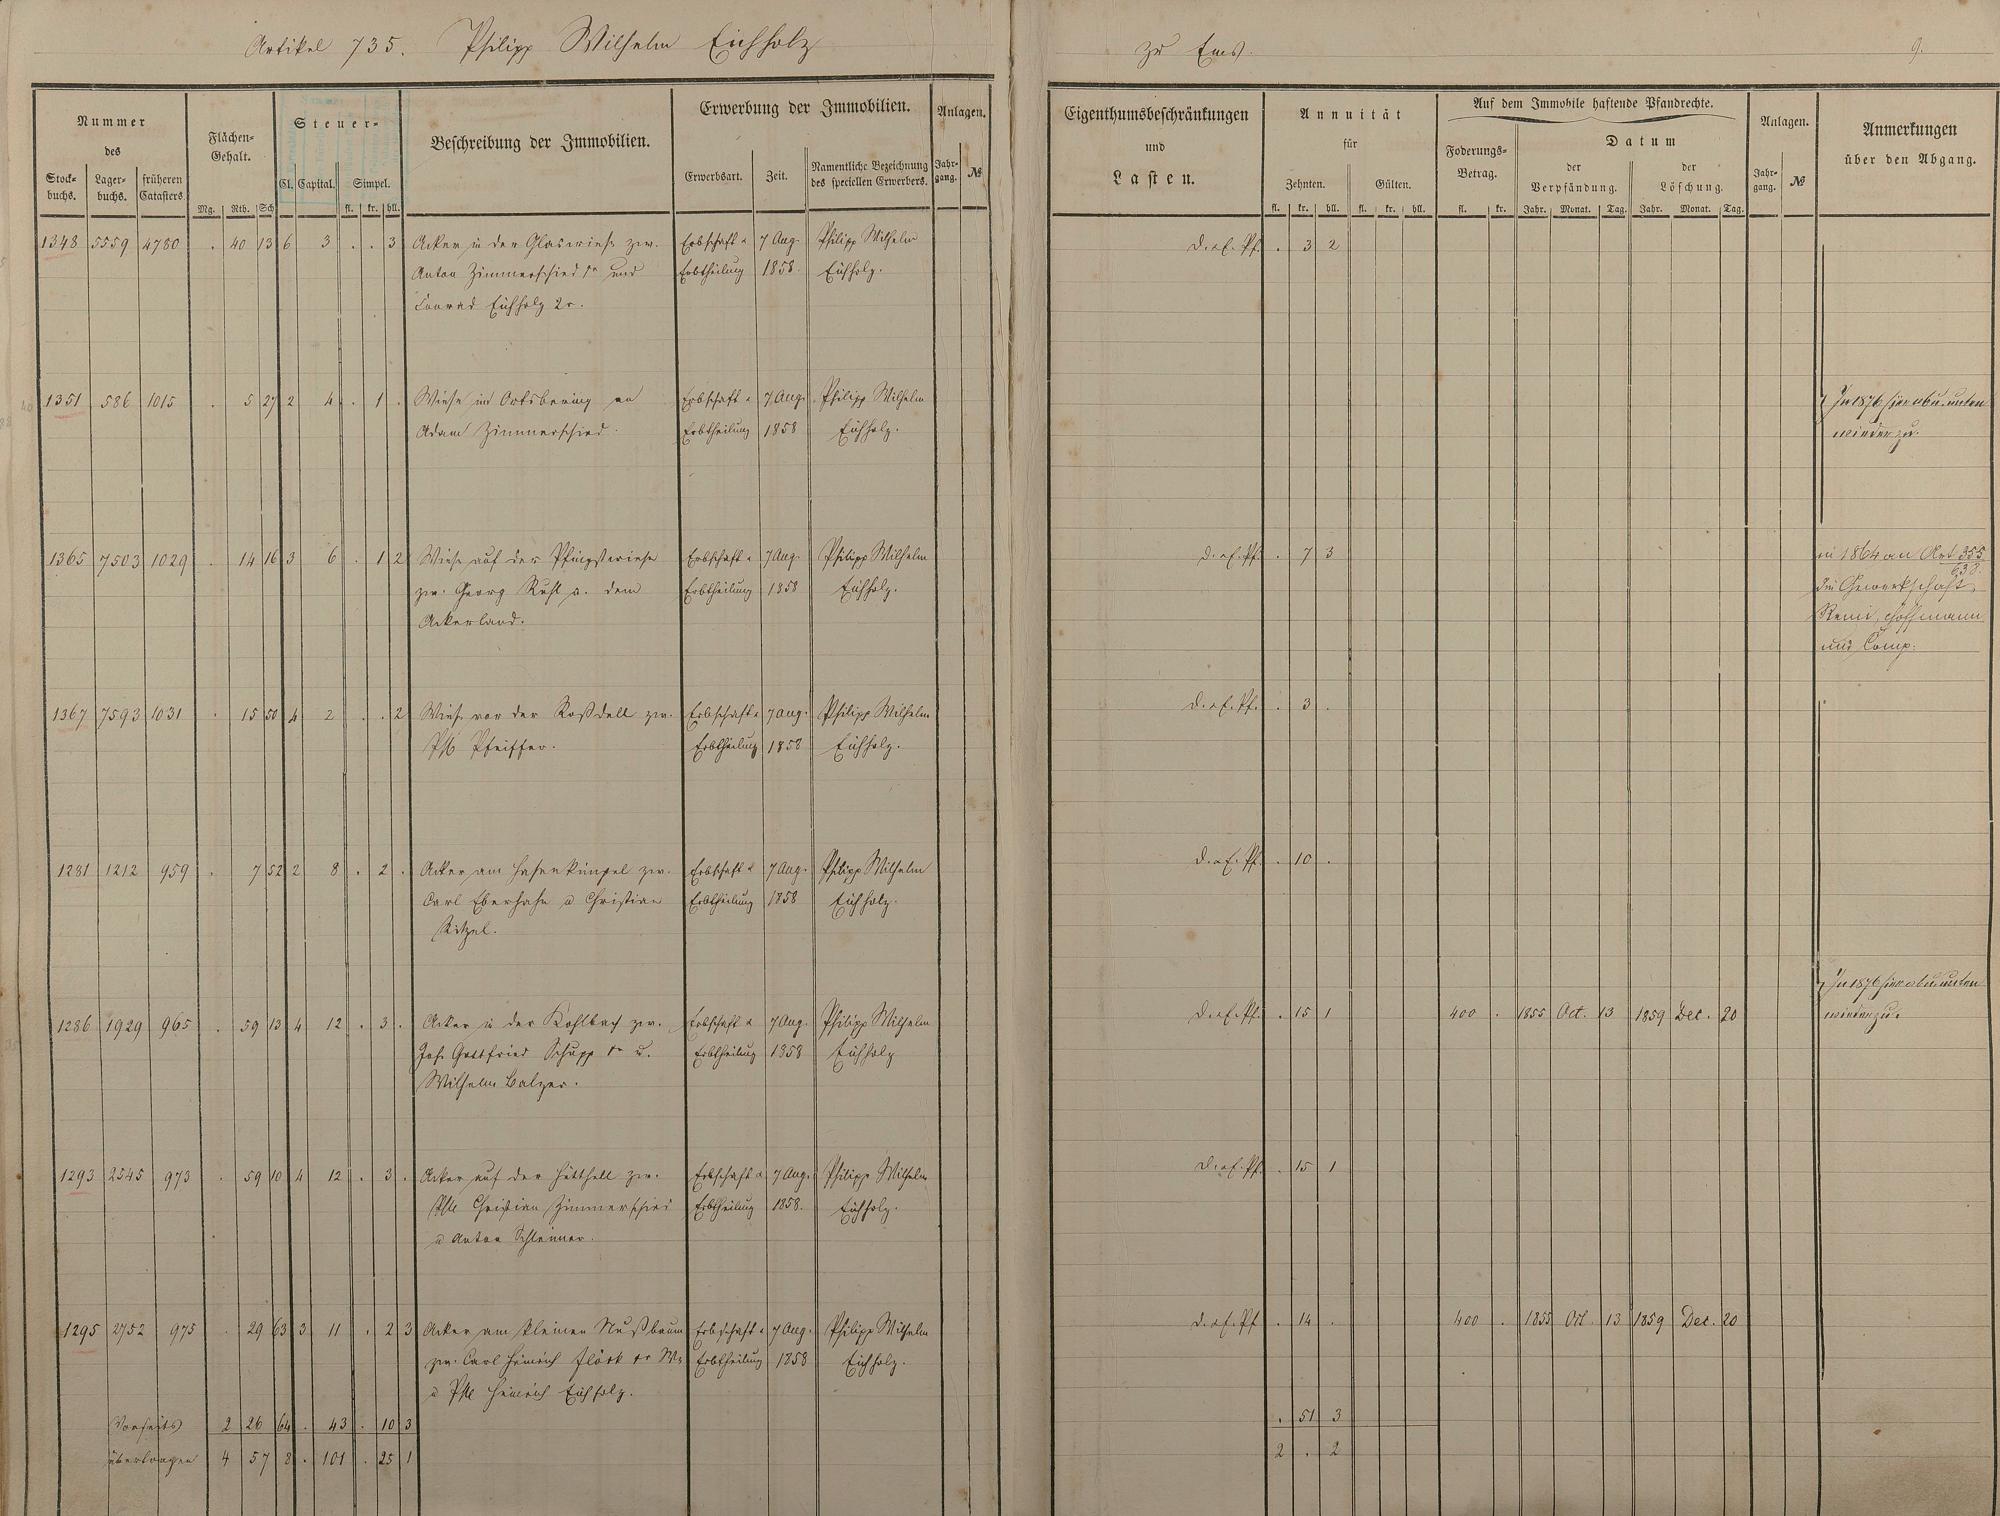 Artikel 735. Philipp Wilhelm Eichholz zu Ems. 9.
Nummer des
Stockbuchs. Lagerbuchs. früheren Catasters
Flächen-Gehalt. Mg. Rth. Sch
Steuer- Cl. Capital. Simpel. fl. kr. hll.
Beschreibung der Immobilien.
Erwerbung der Immobilien.
Erwerbsart. Zeit. Namentliche Bezeichnung des speciellen Erwerbers.
Anlagen. Jahrgang. №
Eigenthumsbeschränkungen und Lasten.
Annuität für Zehnten. Gülten. fl. kr. hll. fl. kr. hll.
Auf dem Immobile haftende Pfandrechte.
Foderungs-Betrag. fl. kr.
Datum der Verpfändung. der Löschung.
Jahr. Monat. Tag. Jahr. Monat. Tag.
Anlagen. Jahrgang. №
Anmerkungen über den Abgang.
1348 5559 4780 . 40 13 6 3 . . 3 Acker in der Glaswiese zw. Erbschaft u 7 Aug. Philipp Wilhelm D. u. E. Pf. . 3 2
Anton Zimmerschied 1r und Erbtheilung 1858. Eichholz.
Conrad Eichholz 2r.
1351 586 1015 . 5 27 2 4 . 1 . Wiese im Ortsbering an Erbschaft u 7 Aug. Philipp Wilhelm In 1876 hier ab u. unten
Adam Zimmerschied. Erbtheilung 1858 Eichholz. wieder zu.
1365 7503 1029 . 14 16 3 6 . 1 2 Wiese auf der Pfingstwiese Erbschaft u 7 Aug. Philipp Wilhelm D. u. E. Pf. . 7 3 in 1864 an Art 355
638.
zw. Georg Ruhl u. dem Erbtheilung 1858 Eichholz. die Gewerkschaft
Ackerland. Remi, Hoffmann
und Comp:
1367 7593 1031 . 15 50 4 2 . . 2 Wiese vor der Roßdell zw. Erbschaft u 7 Aug. Philipp Wilhelm D. u. E. Pf. . 3 .
Pfeiffer. Erbtheilung 1858 Eichholz.
1281 1212 959 . 7 52 2 8 . 2 . Acker am Hasenkümpel zw. Erbschaft u 7 Aug. Philipp Wilhelm D. u. E. Pf. . 10 .
Carl Eberhahn u Christian Erbtheilung 1858 Eichholz.
Ritzel.
1286 1929 965 . 59 13 4 12 . 3 . Acker in der Kohlbach zw. Erbschaft u 7 Aug. Philipp Wilhelm D. u. E. Pf. . 15 1 400 . 1855 Oct. 13 1859 Dec. 20 In 1876 hier ab u. unten
Joh. Gottfried Schupp 1r u. Erbtheilung 1858 Eichholz wieder zu.
Wilhelm Balzer.
1293 2545 973 . 59 10 4 12 . 3 . Acker auf der Hütthell zw. Erbschaft u 7 Aug. Philipp Wilhelm D. u. E. Pf. . 15 1
Christian Zimmerschied Erbtheilung 1858. Eichholz.
u Anton Schleimer.
1295 2752 975 . 29 63 3 11 . 2 3 Acker am kleinen Nußbaum Erbschaft u 7 Aug. Philipp Wilhelm D. u. E. Pf . 14 . 400 . 1855 Oct. 13 1859 Dec. 20
zw. Carl Heinrich Flöck Erbtheilung 1858 Eichholz.
u Heinrich Eichholz.
Vorseits 2 26 64 . 43 . 10 3 . 51 3
übertragen 4 57 8 . 101 . 25 1 2 . 2